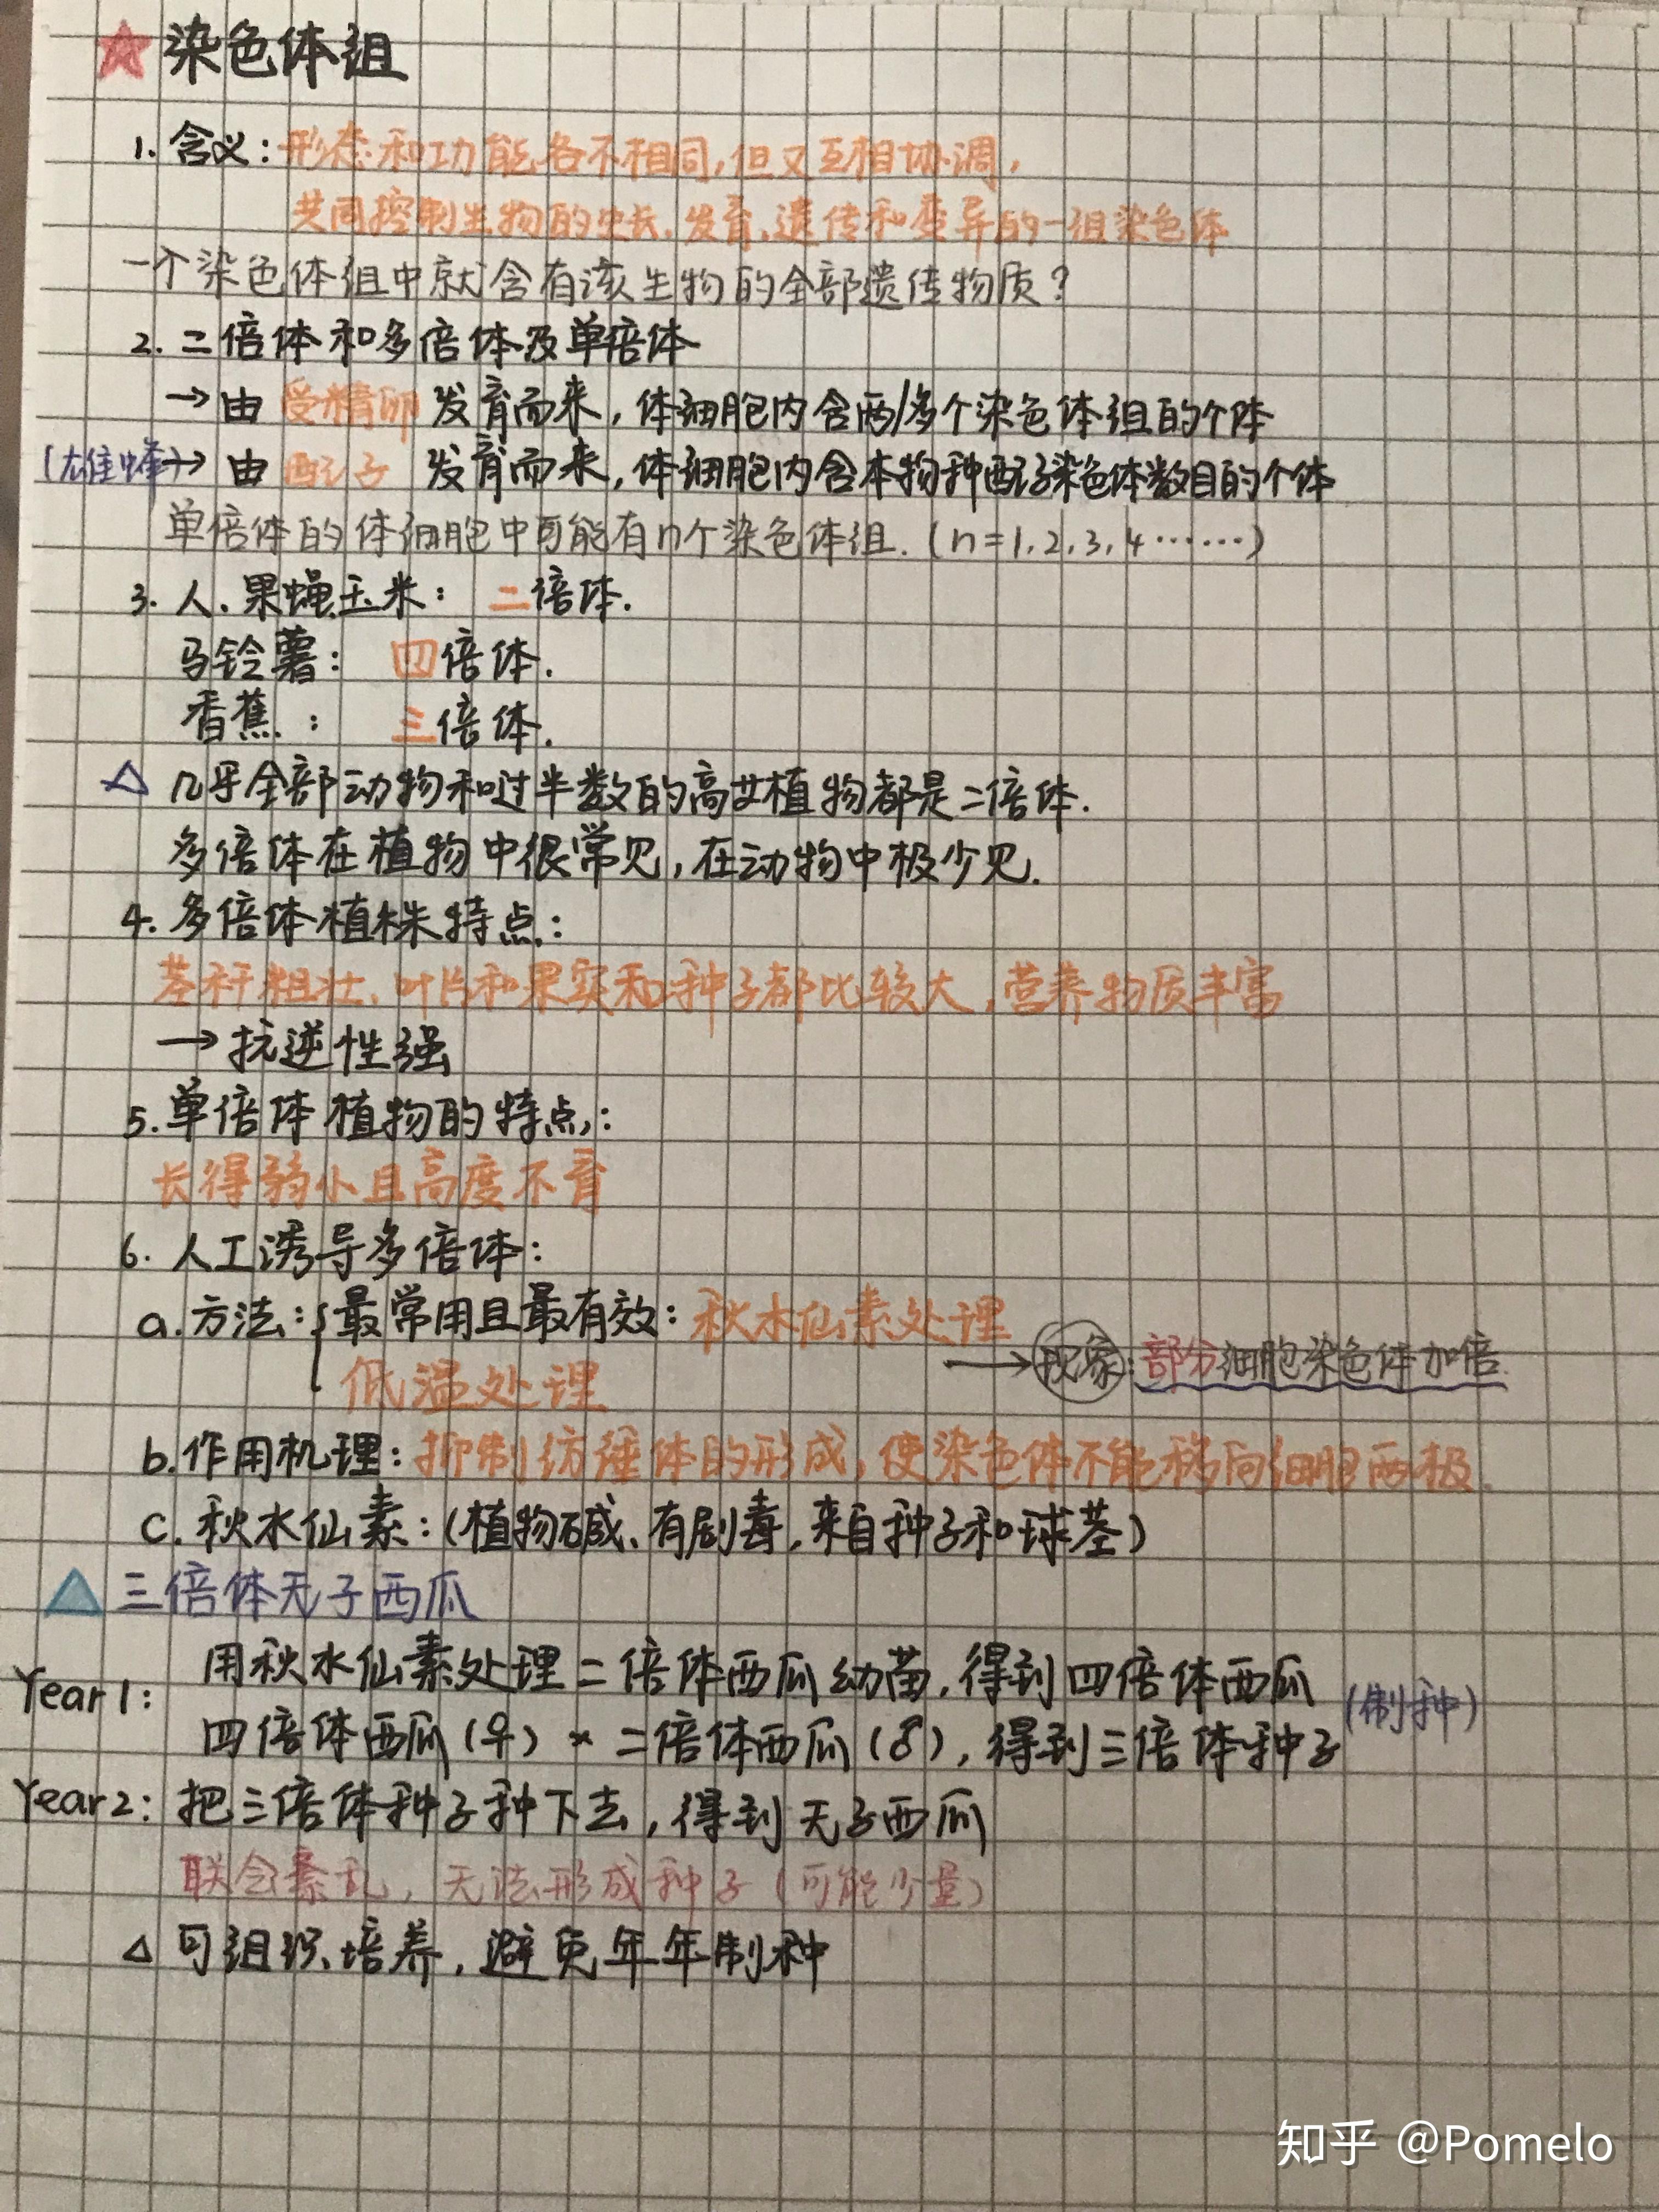 ☆染色体组
1. 含义：形态和功能各不相同,但又互相协调,
共同控制生物的生长、发育、遗传和变异的一组染色体
一个染色体组中就含有该生物的全部遗传物质?
2. 二倍体和多倍体及单倍体
→由 受精卵 发育而来,体细胞内含两/多个染色体组的个体
(雄蜂)→ 由 配子 发育而来,体细胞内含本物种配子染色体数目的个体
单倍体的体细胞中可能有n个染色体组.(n=1,2,3,4……)
3. 人、果蝇玉米: 二倍体.
马铃薯: 四倍体.
香蕉: 三倍体.
△ 几乎全部动物和过半数的高等植物都是二倍体.
多倍体在植物中很常见,在动物中极少见.
4. 多倍体植株特点:
茎秆粗壮、叶片和果实和种子都比较大,营养物质丰富
→抗逆性强
5.单倍体植物的特点:
长得弱小且高度不育
6. 人工诱导多倍体:
a.方法:{最常用且最有效:秋水仙素处理
低温处理
→现象:部分细胞染色体加倍.
b.作用机理:抑制纺锤体的形成,使染色体不能移向细胞两极.
c. 秋水仙素:(植物碱、有剧毒,来自种子和球茎)
△ 三倍体无子西瓜
Year1: 用秋水仙素处理二倍体西瓜幼苗,得到四倍体西瓜
四倍体西瓜(♀) × 二倍体西瓜(♂),得到三倍体种子 (制种)
Year2: 把三倍体种子种下去,得到无子西瓜
联会紊乱,无法形成种子(可能少量)
△ 可组织培养,避免年年制种
知乎 @Pomelo